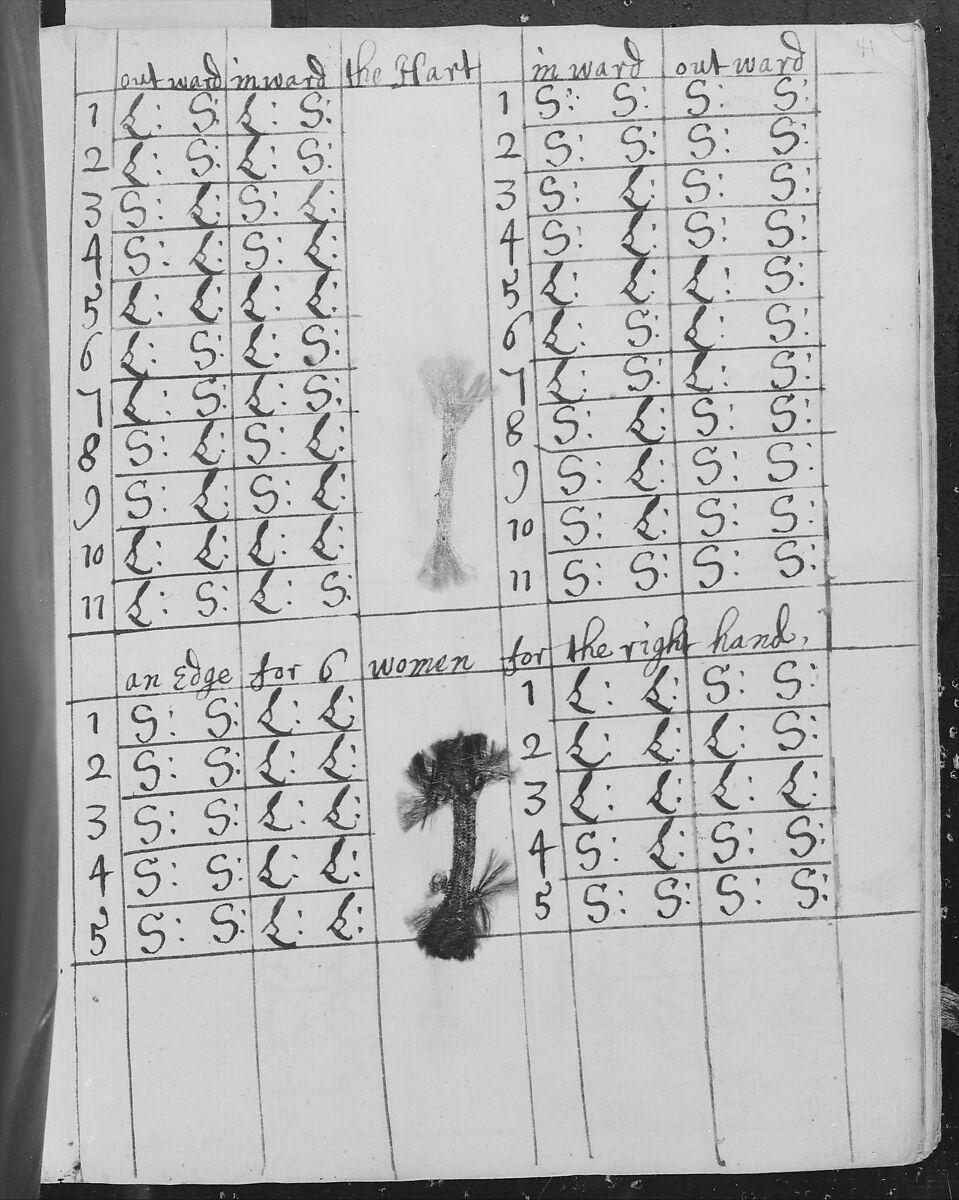 41
out ward in ward the Hart in ward out ward
1 L: S: L: S: 1 S: S: S: S:
2 L: S: L: S: 2 S: S: S: S:
3 S: L: S: L: 3 S: L: S: S:
4 S: L: S: L: 4 S: L: S: S:
5 L: L: L: L: 5 L: L: L: S:
6 L: S: L: S: 6 L: S: L: S:
7 L: S: L: S: 7 L: S: L: S:
8 S: L: S: L: 8 S: L: S: S:
9 S: L: S: L: 9 S: L: S: S:
10 L: L: L: L: 10 S: L: S: S:
11 L: S: L: S: 11 S: S: S: S:
an Edge for 6 women for the right hand,
1 S: S: L: L: 1 L: L: S: S:
2 S: S: L: L: 2 L: L: L: S:
3 S: S: L: L: 3 L: L: L: L:
4 S: S: L: L: 4 S: L: S: S:
5 S: S: L: L: 5 S: S: S: S: